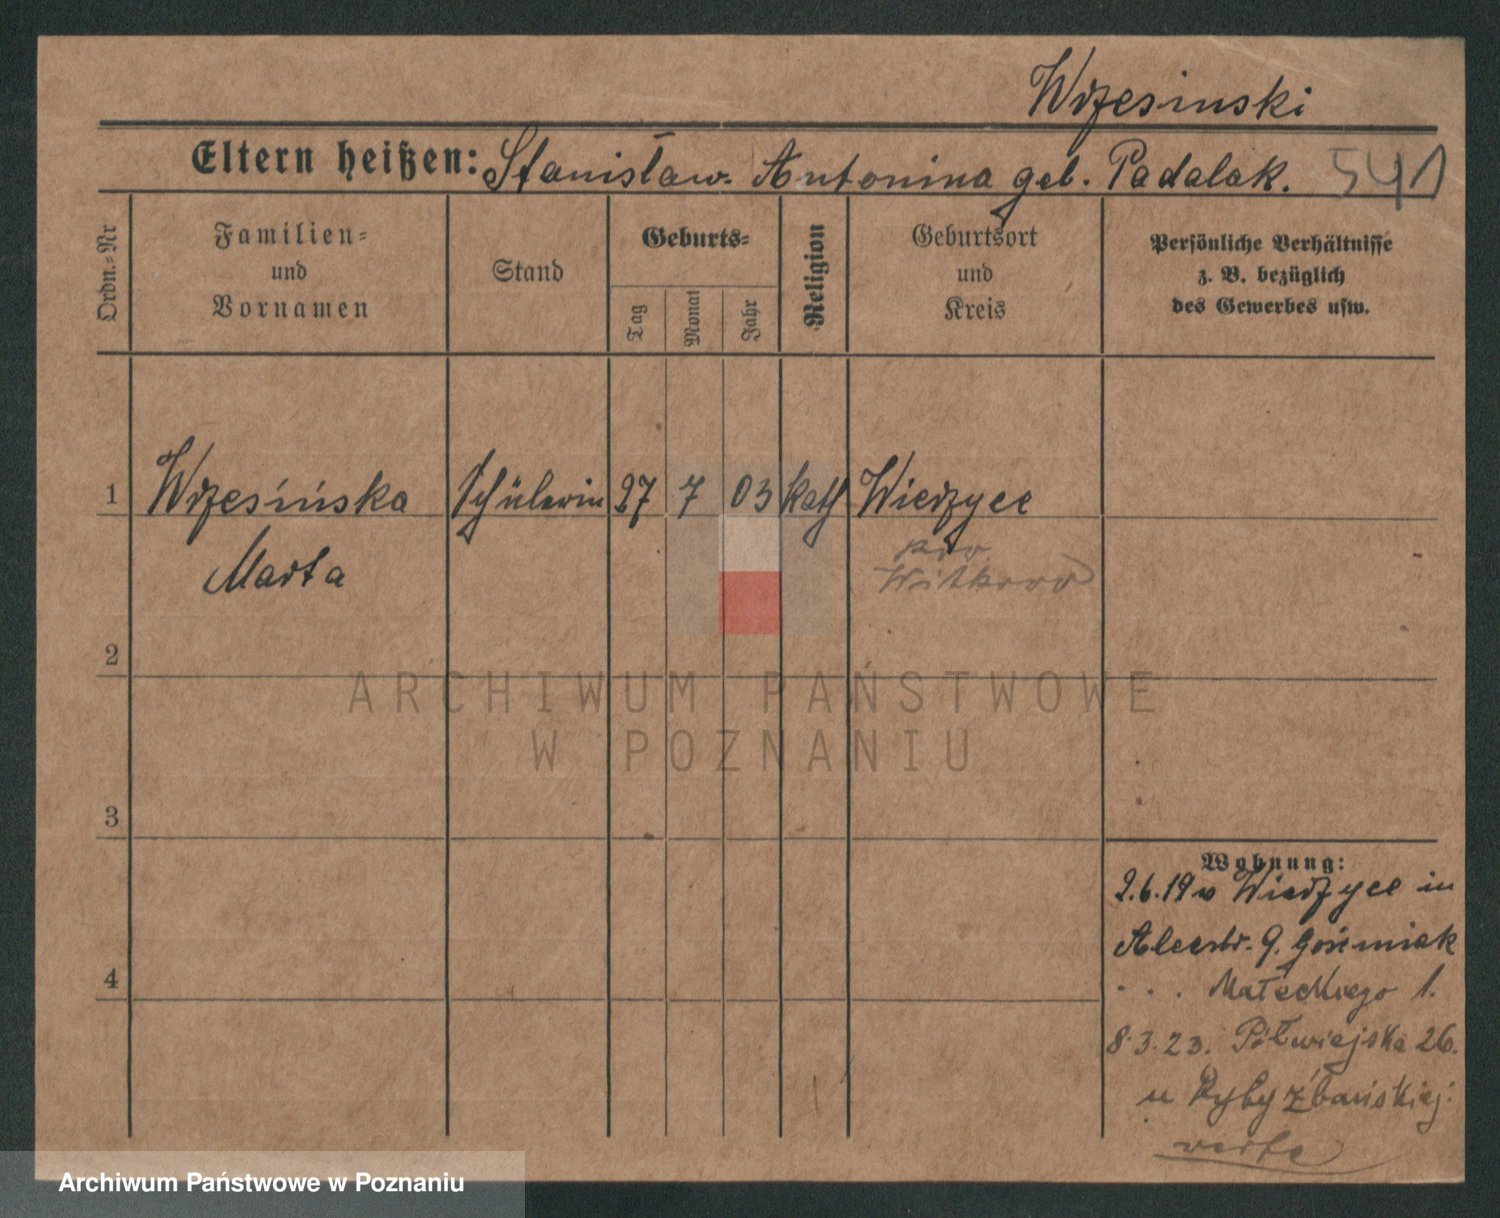 Wrzesinski
Eltern heißen: Stanisław. Antonina geb. Padalak. 541
Ordn.-Nr
Familien-
und
Vornamen
Stand
Geburts-
Tag
Monat
Jahr
Religion
Geburtsort
und
Kreis
Persönliche Verhältnisse
z. B. bezüglich
des Gewerbes usw.
1 Wrzesińska Schülerin 27 7 03 kath Wierzyce
pow
Marta Witkowo
2
ARCHIWUM PAŃSTWOWE
W POZNANIU
3
Wohnung:
2.6.19 v Wierzyce in
9. Gośemiak
4
. . . Małeckiego 1.
8.3.23. Półwiejska 26.
u Zbańskiej
verte
Archiwum Państwowe w Poznaniu